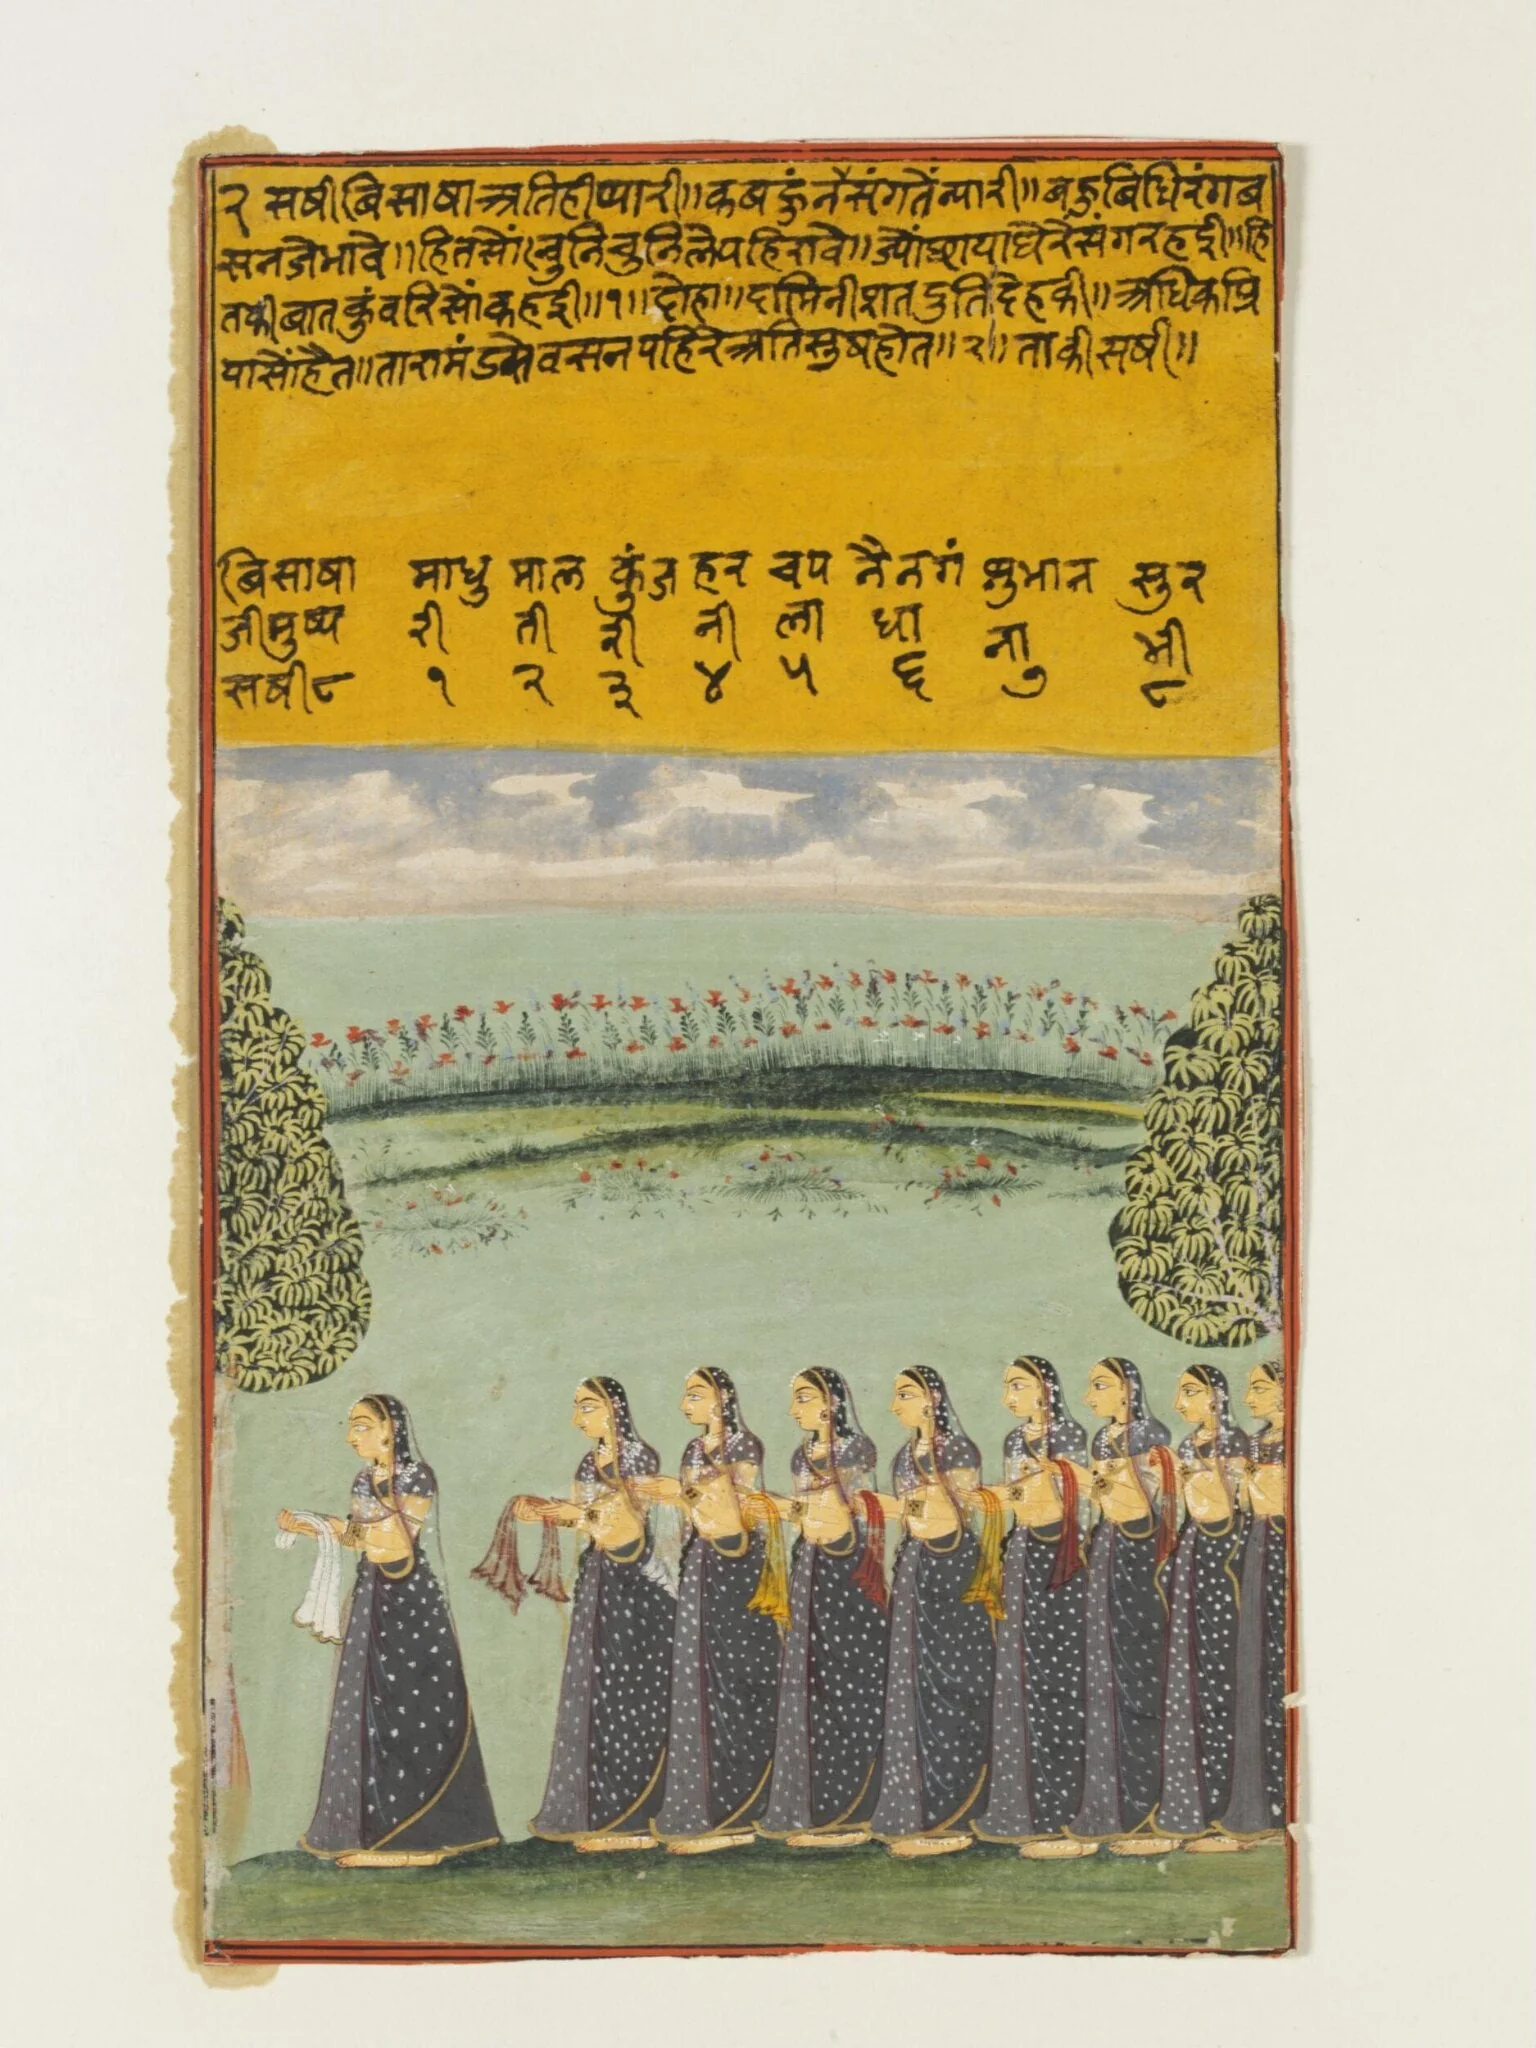 २ सषी बिसाषा अति ही प्यारी॥ कबहुं न संगतें न्यारी॥ बहु बिधि रंग ब
सन जे भावे॥ हित सों चुनि चुनि लै पहिरावै॥ ज्यों छाया घैरें संग रहई॥ हि
तकी बात कुंवरि सों कहई॥१॥ दोहा॥ दामिनी शत दुति देह की॥ अधिक प्रि
या सों हैत॥ तारामंडल से वसन पहिरे अति सुष होत॥२॥ ताकी सषी॥
बिसाषा माधु माल कुंज हर चप नैन गं शुभान सुर
जी मुष्य री ती री नी ला धा ना भी
सषी ८ १ २ ३ ४ ५ ६ ७ ८